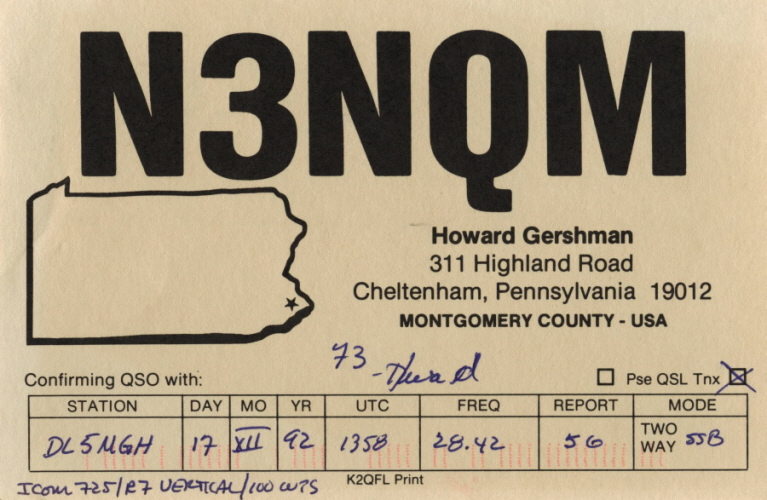 N3NQM
Howard Gershman
311 Highland Road
Cheltenham, Pennsylvania 19012
MONTGOMERY COUNTY - USA
73 - Howard
Confirming QSO with: Pse QSL Tnx
STATION DAY MO YR UTC FREQ REPORT MODE
DL5MGH 17 XII 92 1358 28.42 56 TWO WAY SSB
ICOM 725/R7 VERTICAL/100 WTS K2QFL Print